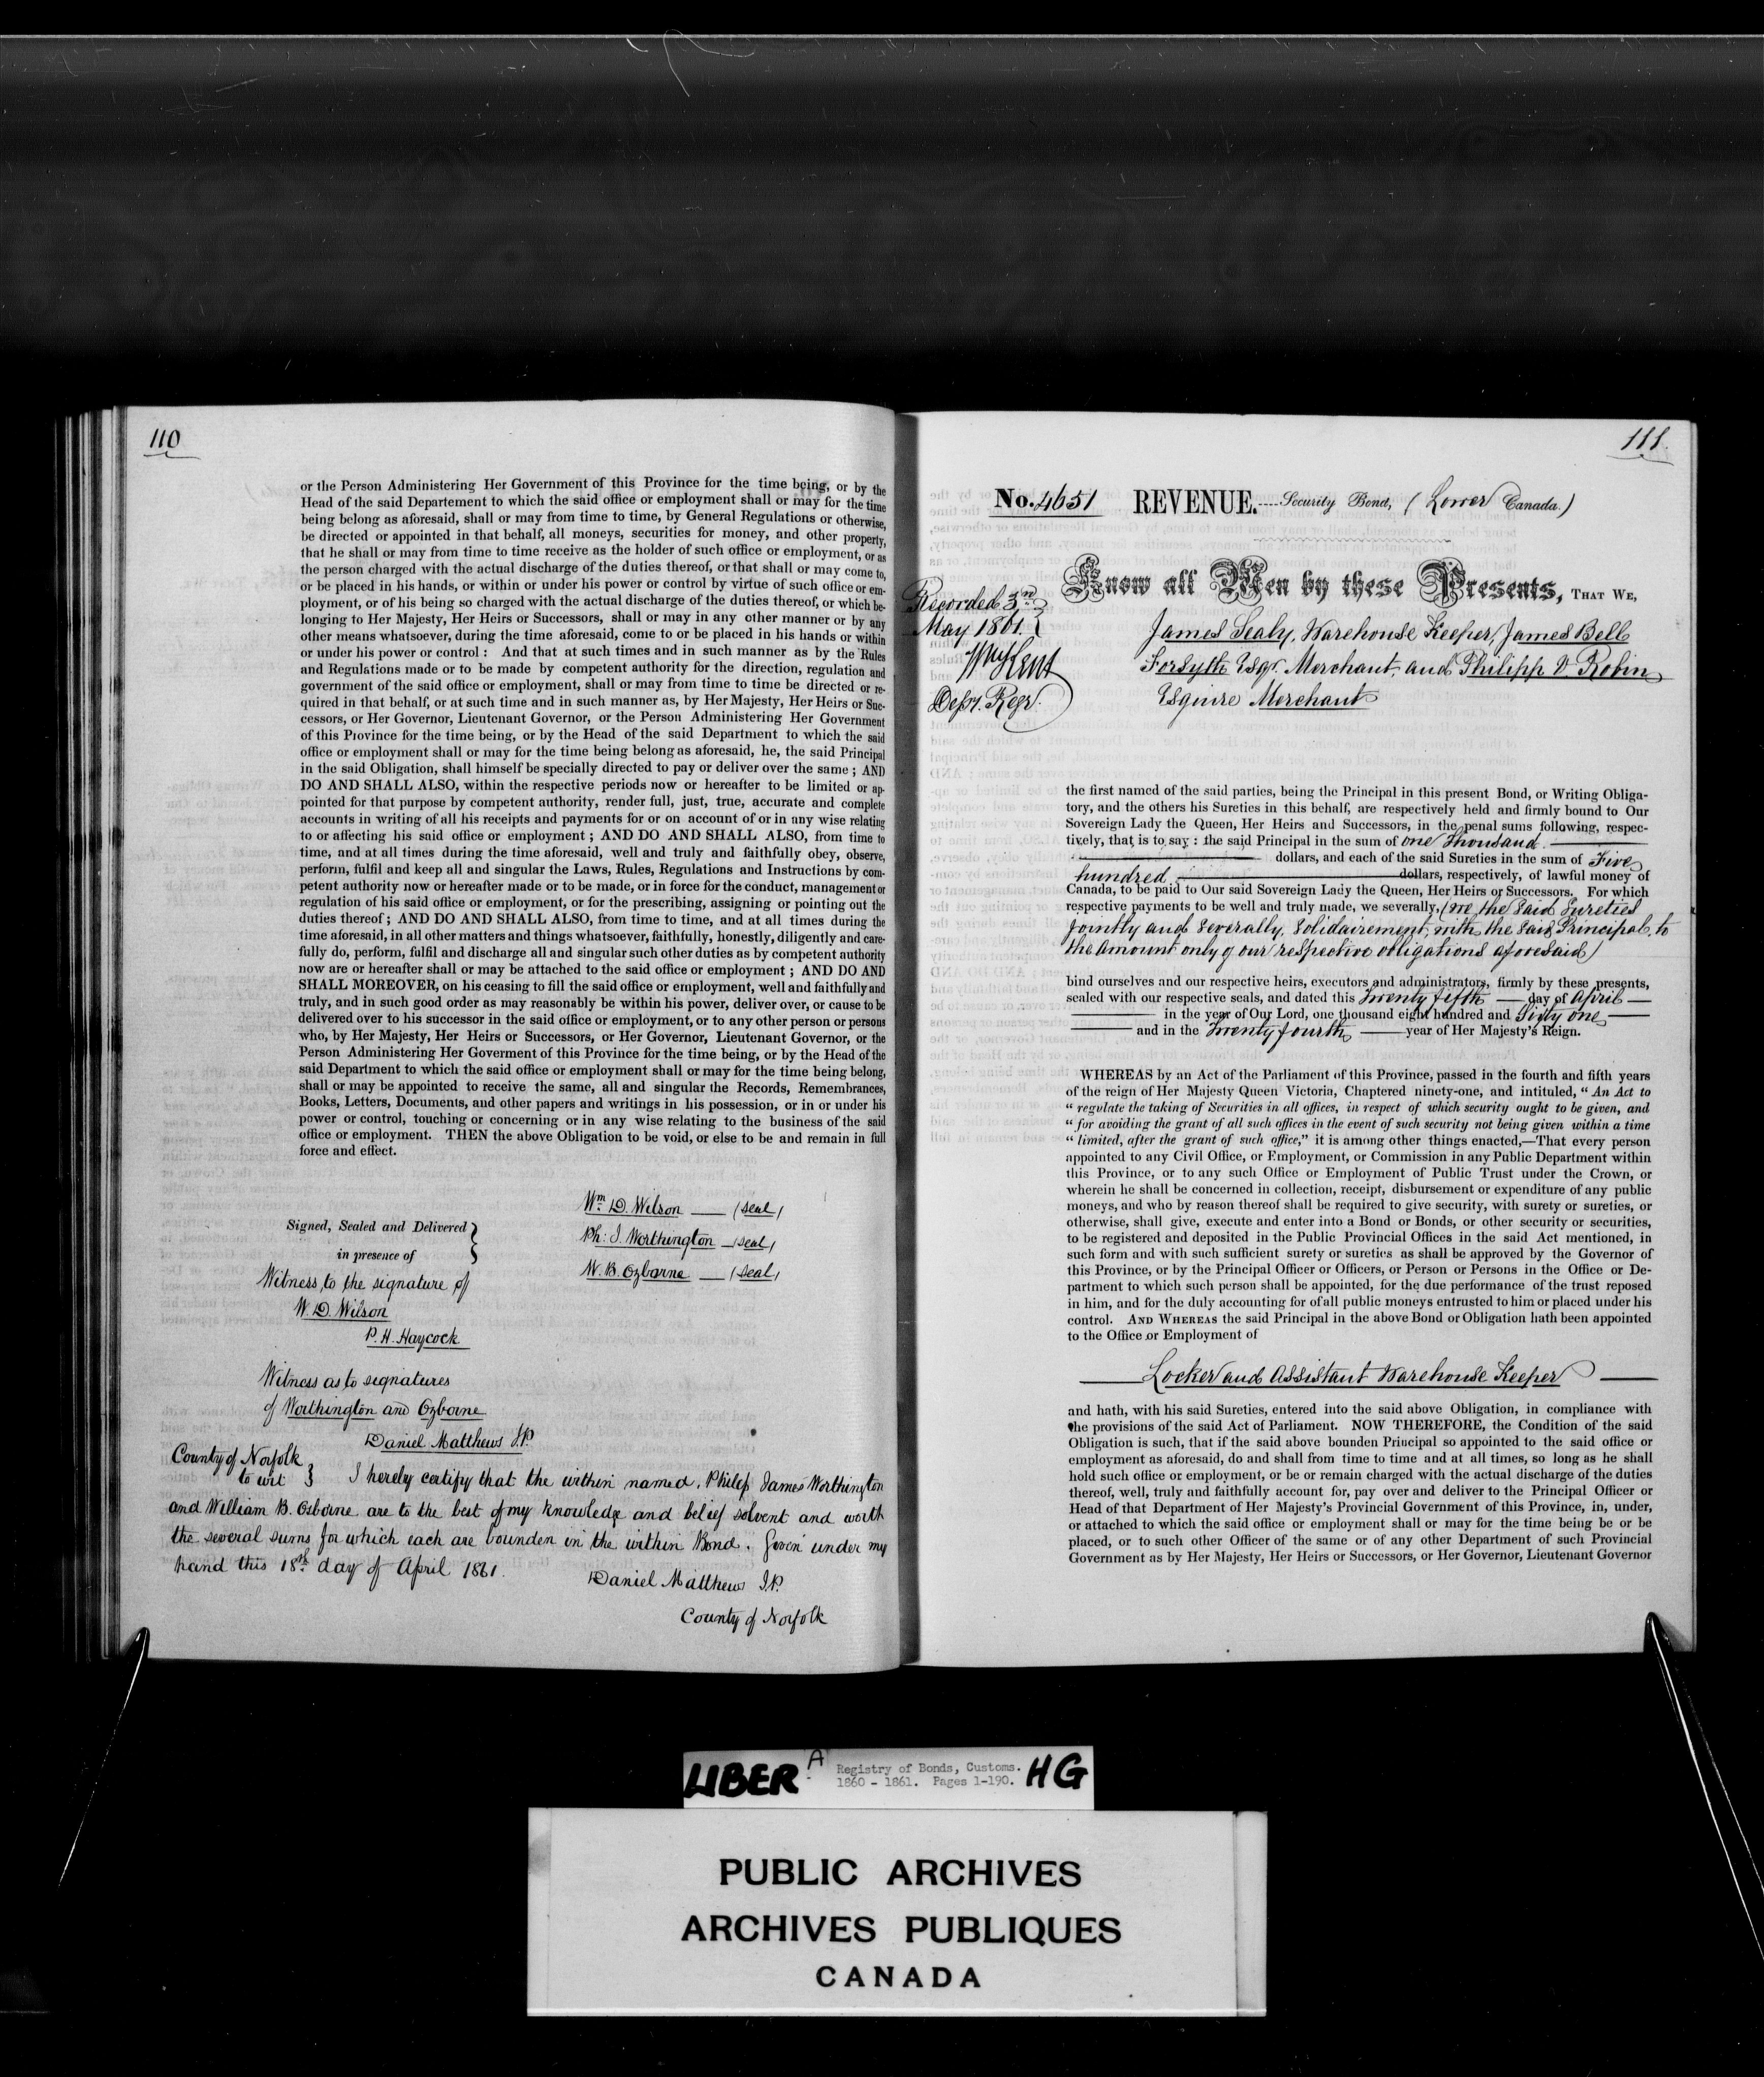 110
or the Person Administering Her Government of this Province for the time being, or by the
Head of the said Departement to which the said office or employment shall or may for the time
being belong as aforesaid, shall or may from time to time, by General Regulations or otherwise,
be directed or appointed in that behalf, all moneys, securities for money, and other property,
that he shall or may from time to time receive as the holder of such office or employment, or as
the person charged with the actual discharge of the duties thereof, or that shall or may come to,
or be placed in his hands, or within or under his power or control by virtue of such office or em-
ployment, or of his being so charged with the actual discharge of the duties thereof, or which be-
longing to Her Majesty, Her Heirs or Successors, shall or may in any other manner or by any
other means whatsoever, during the time aforesaid, come to or be placed in his hands or within
or under his power or control : And that at such times and in such manner as by the Rules
and Regulations made or to be made by competent authority for the direction, regulation and
government of the said office or employment, shall or may from time to time be directed or re-
quired in that behalf, or at such time and in such manner as, by Her Majesty, Her Heirs or Suc-
cessors, or Her Governor, Lieutenant Governor, or the Person Administering Her Government
of this Province for the time being, or by the Head of the said Department to which the said
office or employment shall or may for the time being belong as aforesaid, he, the said Principal
in the said Obligation, shall himself be specially directed to pay or deliver over the same ; AND
DO AND SHALL ALSO, within the respective periods now or hereafter to be limited or ap-
pointed for that purpose by competent authority, render full, just, true, accurate and complete
accounts in writing of all his receipts and payments for or on account of or in any wise relating
to or affecting his said office or employment ; AND DO AND SHALL ALSO, from time to
time, and at all times during the time aforesaid, well and truly and faithfully obey, observe,
perform, fulfil and keep all and singular the Laws, Rules, Regulations and Instructions by com-
petent authority now or hereafter made or to be made, or in force for the conduct, management or
regulation of his said office or employment, or for the prescribing, assigning or pointing out the
duties thereof ; AND DO AND SHALL ALSO, from time to time, and at all times during the
time aforesaid, in all other matters and things whatsoever, faithfully, honestly, diligently and care-
fully do, perform, fulfil and discharge all and singular such other duties as by competent authority
now are or hereafter shall or may be attached to the said office or employment ; AND DO AND
SHALL MOREOVER, on his ceasing to fill the said office or employment, well and faithfully and
truly, and in such good order as may reasonably be within his power, deliver over, or cause to be
delivered over to his successor in the said office or employment, or to any other person or persons
who, by Her Majesty, Her Heirs or Successors, or Her Governor, Lieutenant Governor, or the
Person Administering Her Goverment of this Province for the time being, or by the Head of the
said Department to which the said office or employment shall or may for the time being belong,
shall or may be appointed to receive the same, all and singular the Records, Remembrances,
Books, Letters, Documents, and other papers and writings in his possession, or in or under his
power or control, touching or concerning or in any wise relating to the business of the said
office or employment. THEN the above Obligation to be void, or else to be and remain in full
force and effect.
Wm D. Wilson (seal)
Signed, Sealed and Delivered
in presence of
Ph: J. Worthington (seal)
W. B. Ozborne (seal)
Witness to the signature of
W. D. Wilson
P. H. Haycock
Witness as to signatures
of Worthington and Ozborne
Daniel Matthews J.P.
County of Norfolk
to wit } I hereby certify that the within named, Philip James Worthington
and William B. Osborne are to the best of my knowledge and belief solvent and worth
the several sums for which each are bounden in the within Bond. Given under my
hand this 18th day of April 1861.
Daniel Matthews J.P.
County of Norfolk
111.
No. 4651 REVENUE.----Security Bond, (Lower Canada.)
Know all Men by these Presents, THAT WE,
Recorded 3rd
May 1861.
Depy. Regr.
James Sealy, Warehouse Keeper, James Bell
Forsyth Esqr. Merchant, and Philipp V. Robin
Esquire Merchant
the first named of the said parties, being the Principal in this present Bond, or Writing Obliga-
tory, and the others his Sureties in this behalf, are respectively held and firmly bound to Our
Sovereign Lady the Queen, Her Heirs and Successors, in the penal sums following, respec-
tively, that is to say : the said Principal in the sum of one thousand
dollars, and each of the said Sureties in the sum of Five
hundred dollars, respectively, of lawful money of
Canada, to be paid to Our said Sovereign Lady the Queen, Her Heirs or Successors. For which
respective payments to be well and truly made, we severally, (we the said Sureties
jointly and severally, Solidairement, with the said Principal, to
the amount only of our respective obligations aforesaid)
bind ourselves and our respective heirs, executors and administrators, firmly by these presents,
sealed with our respective seals, and dated this Twenty fifth day of April
in the year of Our Lord, one thousand eight hundred and Sixty one
and in the Twenty fourth year of Her Majesty's Reign.
WHEREAS by an Act of the Parliament of this Province, passed in the fourth and fifth years
of the reign of Her Majesty Queen Victoria, Chaptered ninety-one, and intituled, " An Act to
" regulate the taking of Securities in all offices, in respect of which security ought to be given, and
" for avoiding the grant of all such offices in the event of such security not being given within a time
" limited, after the grant of such office," it is among other things enacted,—That every person
appointed to any Civil Office, or Employment, or Commission in any Public Department within
this Province, or to any such Office or Employment of Public Trust under the Crown, or
wherein he shall be concerned in collection, receipt, disbursement or expenditure of any public
moneys, and who by reason thereof shall be required to give security, with surety or sureties, or
otherwise, shall give, execute and enter into a Bond or Bonds, or other security or securities,
to be registered and deposited in the Public Provincial Offices in the said Act mentioned, in
such form and with such sufficient surety or sureties as shall be approved by the Governor of
this Province, or by the Principal Officer or Officers, or Person or Persons in the Office or De-
partment to which such person shall be appointed, for the due performance of the trust reposed
in him, and for the duly accounting for of all public moneys entrusted to him or placed under his
control. AND WHEREAS the said Principal in the above Bond or Obligation hath been appointed
to the Office or Employment of
Locker and Assistant Warehouse Keeper
and hath, with his said Sureties, entered into the said above Obligation, in compliance with
the provisions of the said Act of Parliament. NOW THEREFORE, the Condition of the said
Obligation is such, that if the said above bounden Principal so appointed to the said office or
employment as aforesaid, do and shall from time to time and at all times, so long as he shall
hold such office or employment, or be or remain charged with the actual discharge of the duties
thereof, well, truly and faithfully account for, pay over and deliver to the Principal Officer or
Head of that Department of Her Majesty's Provincial Government of this Province, in, under,
or attached to which the said office or employment shall or may for the time being be or be
placed, or to such other Officer of the same or of any other Department of such Provincial
Government as by Her Majesty, Her Heirs or Successors, or Her Governor, Lieutenant Governor
LIBER A Registry of Bonds, Customs. HG
1860 - 1861. Pages 1-190.
PUBLIC ARCHIVES
ARCHIVES PUBLIQUES
CANADA